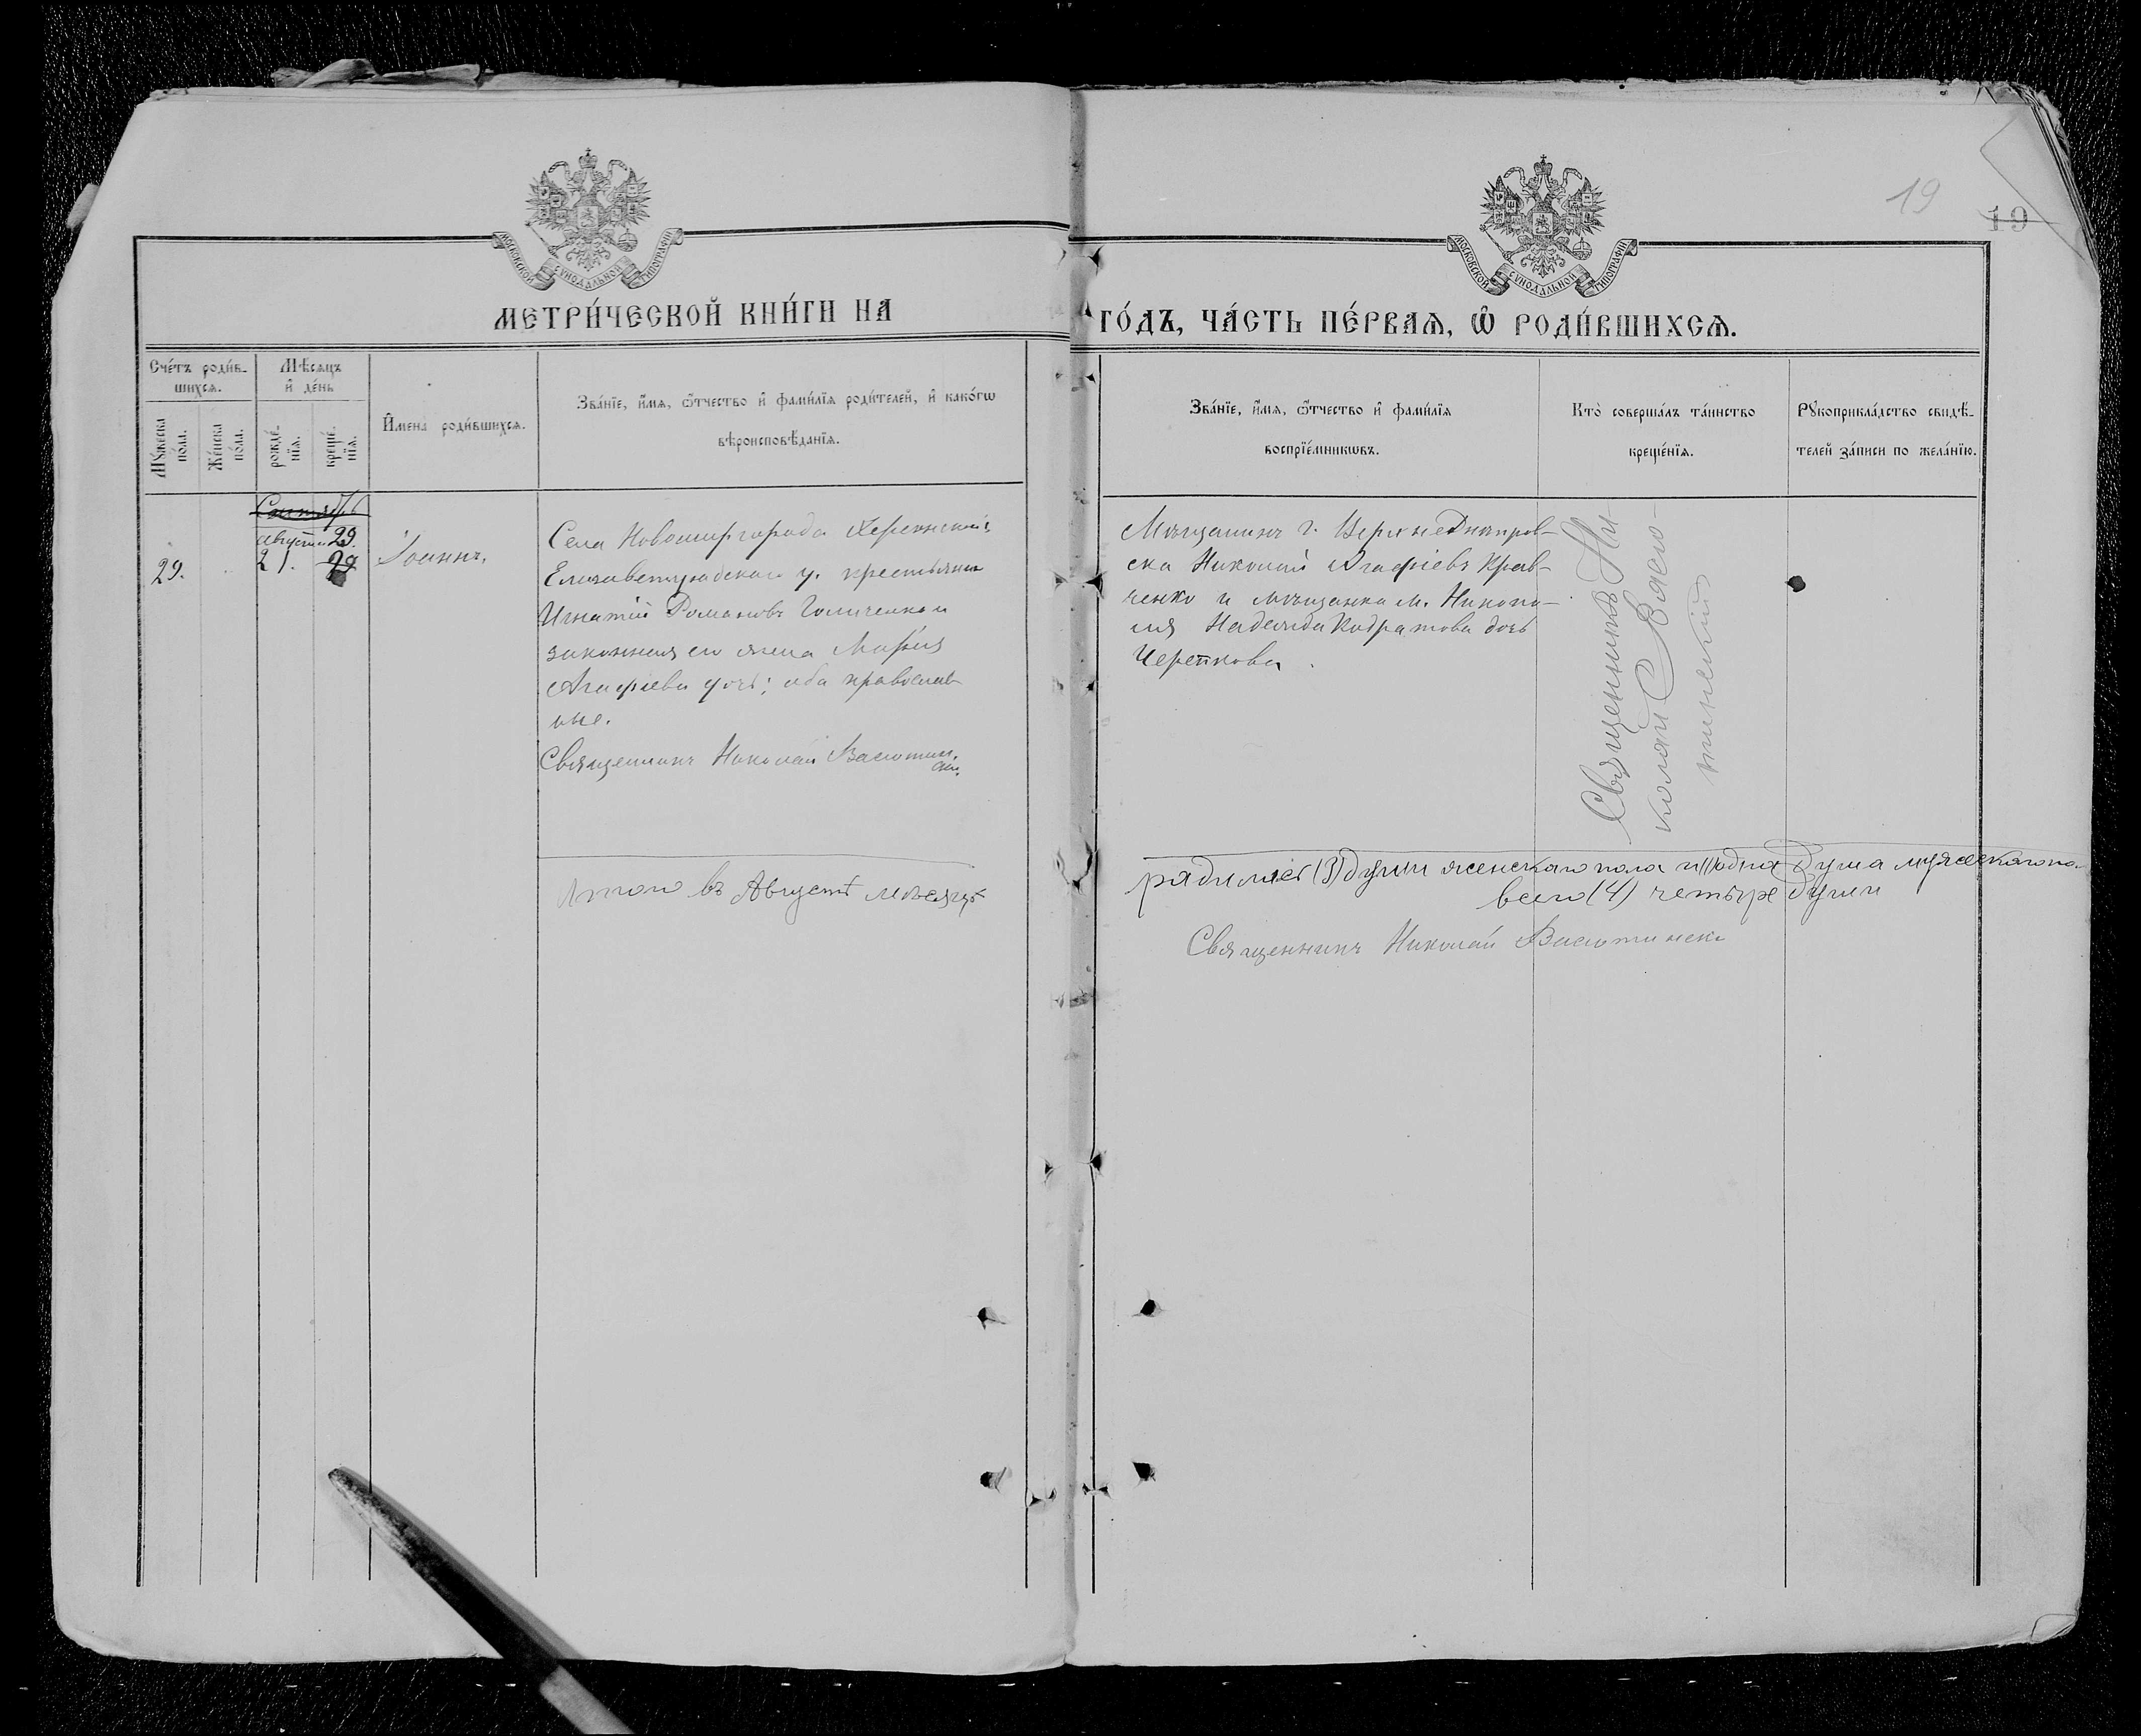 19
19
МОСКОВСКОЙ СѴНОДАЛЬНОЙ ТИПОГРАФІИ
МОСКОВСКОЙ СѴНОДАЛЬНОЙ ТИПОГРАФІИ
МЕТРИ́ЧЕСКОЙ КНИ́ГИ НА
ГО́ДЪ, ЧА́СТЬ ПЕ́РВАѦ, Ѡ҆ РОДИ́ВШИХСѦ.
Сче́тъ роди́в-
шихсѧ.
Мѣ́сѧцъ
и҆ де́нь
Мꙋ́жеска
по́ла.
Же́нска
по́ла.
рожде́-
нїѧ.
креще́-
нїѧ.
И҆мена̀ роди́вшихсѧ.
Зва́нїе, и҆́мѧ, ѻ҆́тчество и҆ фами́лїѧ роди́телей, и҆ како́гѡ
вѣроисповѣ́данїѧ.
Зва́нїе, и҆́мѧ, ѻ҆́тчество и҆ фами́лїѧ
воспрїе́мникѡвъ.
Кто̀ соверша́лъ та́инство
креще́нїѧ.
Рꙋкоприкла́дство свидѣ́-
телей за́писи по жела́нїю.
Августа 29.
29.
21. 29
Іоаннъ,
Села Новомиргорода Херсонской
Елизаветградскаго у. крестьянинъ
Игнатій Романовъ и
законная его жена Марія
Агафіева дочь; оба православ-
ные.
Священникъ Николай Васютин-
скій
Мѣщанинъ г. Верхнеднѣпров-
ска Николай Агафіевъ Крав-
ченко и мѣщанка м. Никопо-
ля Надежда Кодратова дочь
Черепкова.
Священникъ Ни-
колай Васю-
тинскій
Итого въ Августѣ мѣсяцѣ
родилось (3) души женскаго пола и (1) одна душа мужескаго по-
всего (4) четыре души
Священникъ Николай Васютинскі